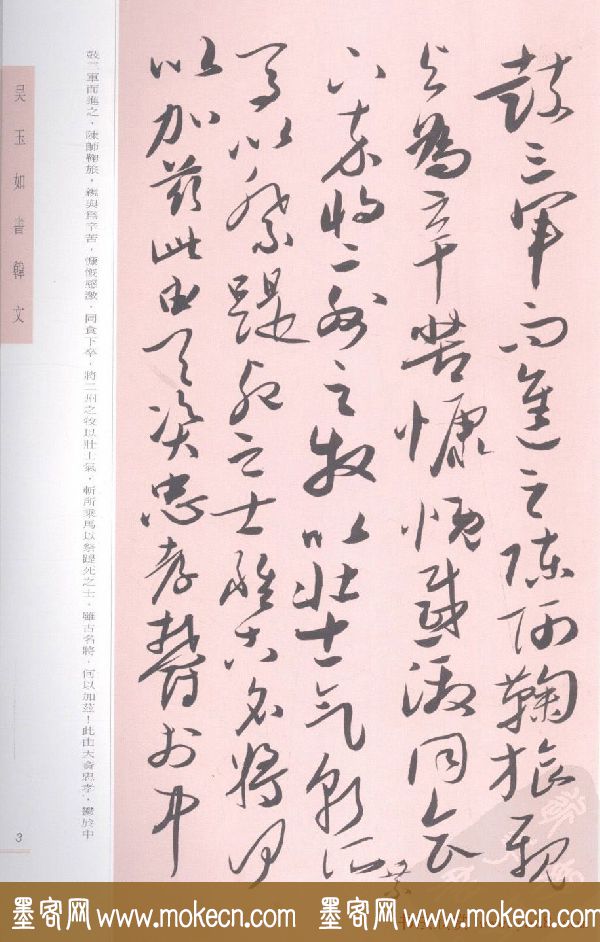 鼓三軍而進之陳師鞠旅親
與為辛苦慷慨感激同食
下卒將二州之牧以壯士氣斬所乘
馬以祭踶死之士雖古名將何
以加茲此由天資忠孝鬱於中
鼓三軍而進之，陳師鞠旅，親與爲辛苦，慷慨感激，同食下卒，將二州之牧以壯士氣，斬所乘馬以祭踶死之士，雖古名將，何以加茲！此由天資忠孝，鬱於中
吴玉如書韓文
3
墨客网 www.mokecn.com 墨客网 www.mokecn.com